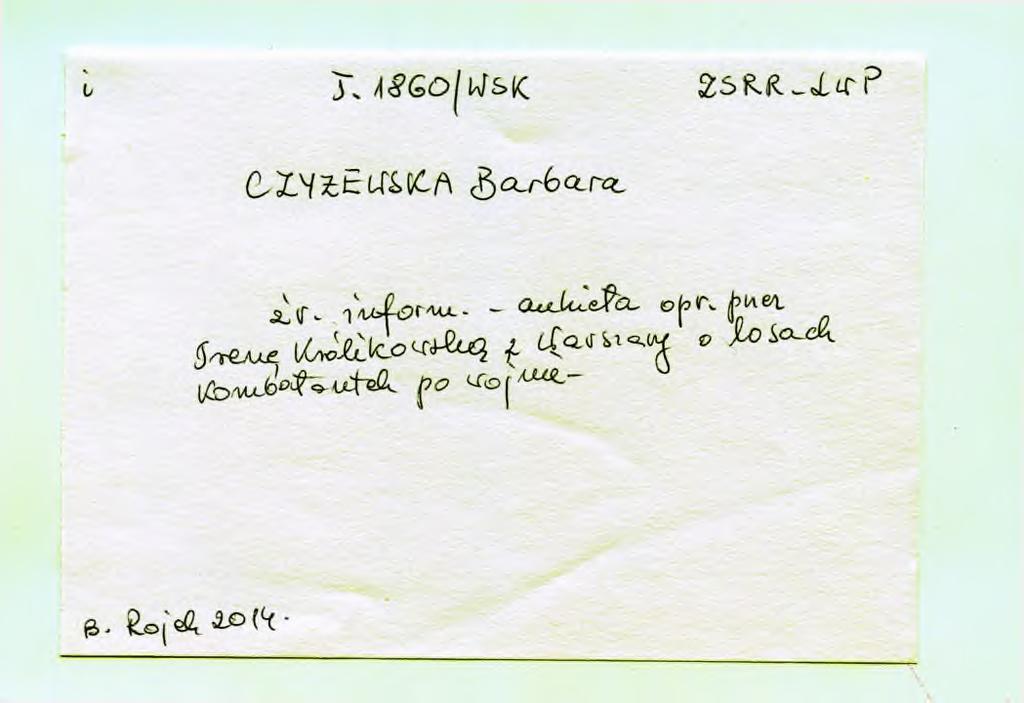 i T. 1860/WSK ZSRR-LWP
CZYŻEWSKA Barbara
źr. inform. - ankieta opr. przez
Irenę Królikowską z Warszawy o losach
kombatantek po wojnie-
B. Rojek 2014.